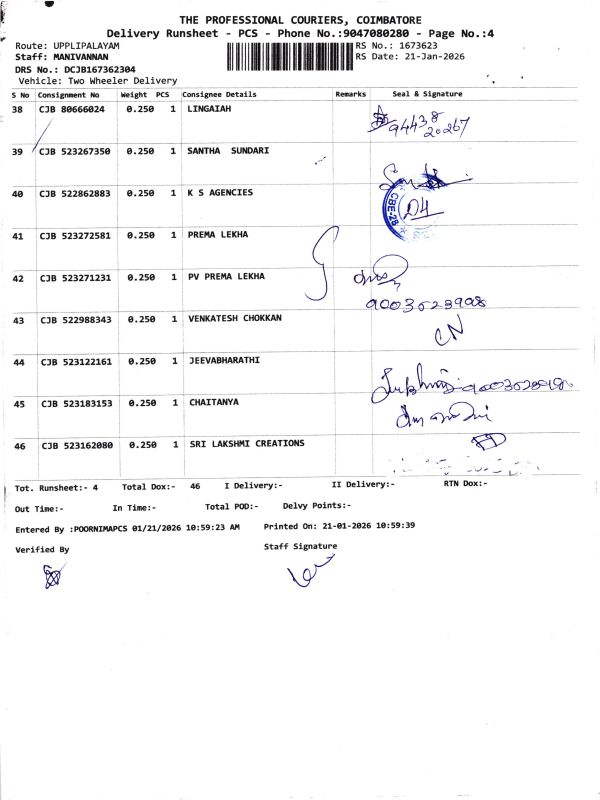 THE PROFESSIONAL COURIERS, COIMBATORE
Delivery Runsheet - PCS - Phone No.:9047080280 - Page No.:4
Route: UPPLIPALAYAM
RS No.: 1673623
Staff: MANIVANNAN
RS Date: 21-Jan-2026
DRS No.: DCJB167362304
Vehicle: Two Wheeler Delivery
S No Consignment No Weight PCS Consignee Details Remarks Seal & Signature
38 CJB 80666024 0.250 1 LINGAIAH
94438
20267
39 CJB 523267350 0.250 1 SANTHA SUNDARI
40 CJB 522862883 0.250 1 K S AGENCIES
CBE-28
D4
41 CJB 523272581 0.250 1 PREMA LEKHA
42 CJB 523271231 0.250 1 PV PREMA LEKHA
9003023998
43 CJB 522988343 0.250 1 VENKATESH CHOKKAN
CN
44 CJB 523122161 0.250 1 JEEVABHARATHI
45 CJB 523183153 0.250 1 CHAITANYA
46 CJB 523162080 0.250 1 SRI LAKSHMI CREATIONS
Tot. Runsheet:- 4 Total Dox:- 46 I Delivery:- II Delivery:- RTN Dox:-
Out Time:- In Time:- Total POD:- Delvy Points:-
Entered By :POORNIMAPCS 01/21/2026 10:59:23 AM Printed On: 21-01-2026 10:59:39
Verified By Staff Signature